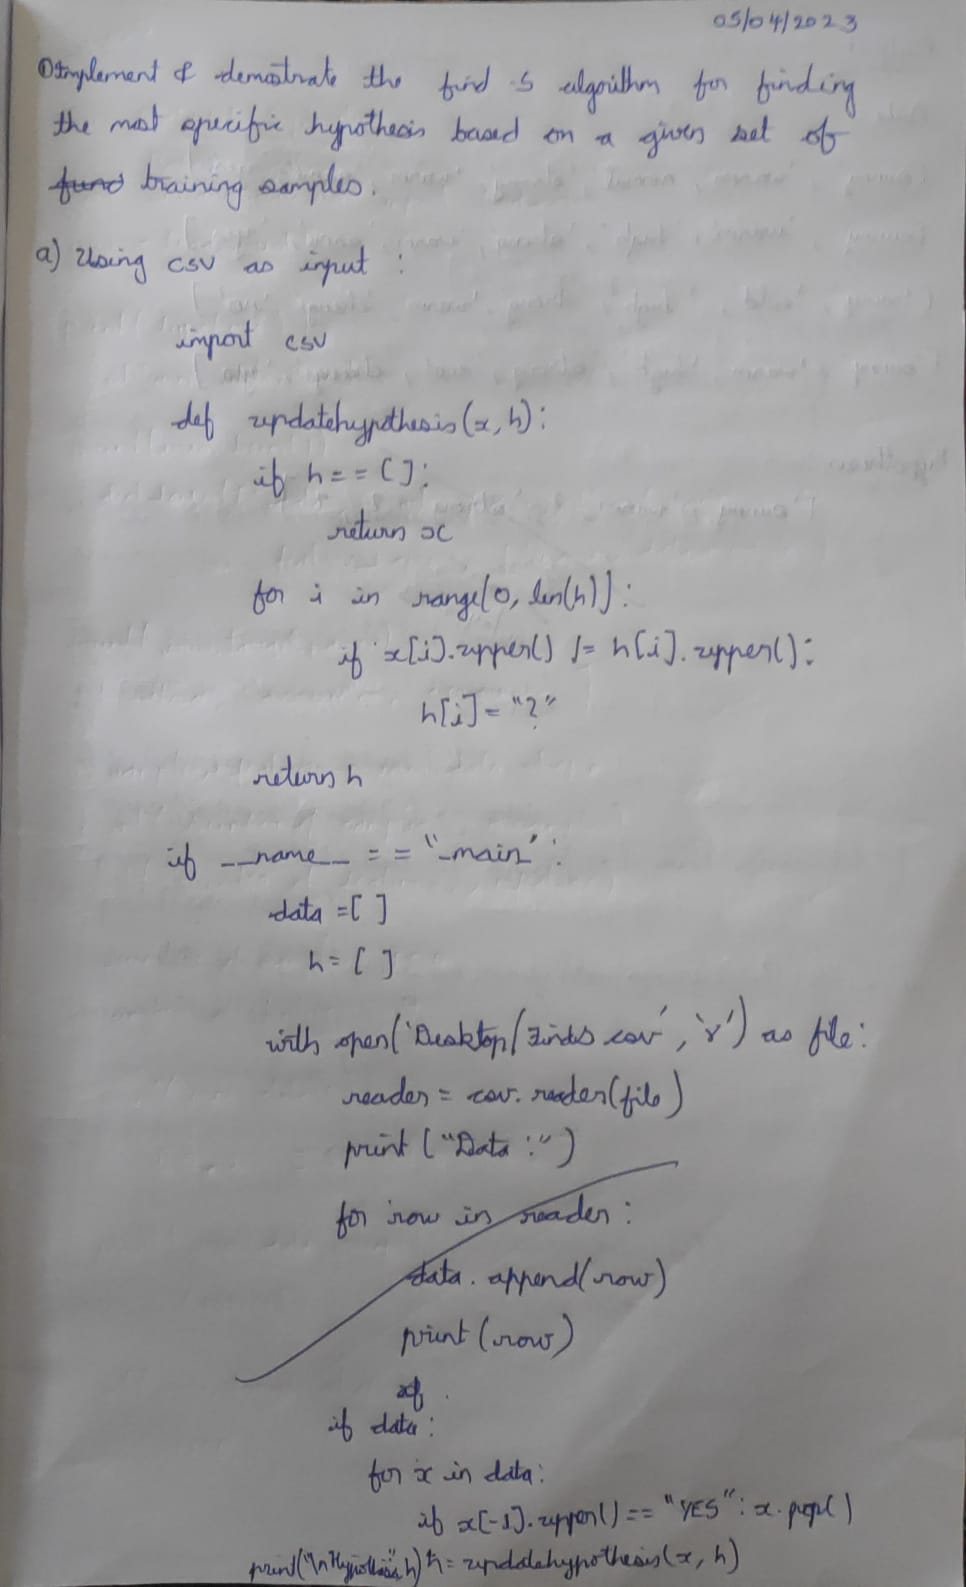 05/04/2023
①Implement & demostrate the find -s algorithm for finding
the most specific hypothesis based on a given set of
fund training samples.
a) Using csv as input :
import csv
def updatehypothesis(x, h):
if h == []:
return x
for i in range(0, len(h)):
if x[i].upper() != h[i].upper():
h[i] = "?"
return h
if __name__ == "_main":
data = [ ]
h = [ ]
with open('Desktop/Finds csv', 'r') as file:
reader = csv.reader(file)
print ("Data :")
for row in reader :
data. append(row)
print (row)
if data :
for x in data:
if x[-1].upper() == "YES": x.pop()
print("\nHypothesis", h) h = updatehypothesis(x, h)